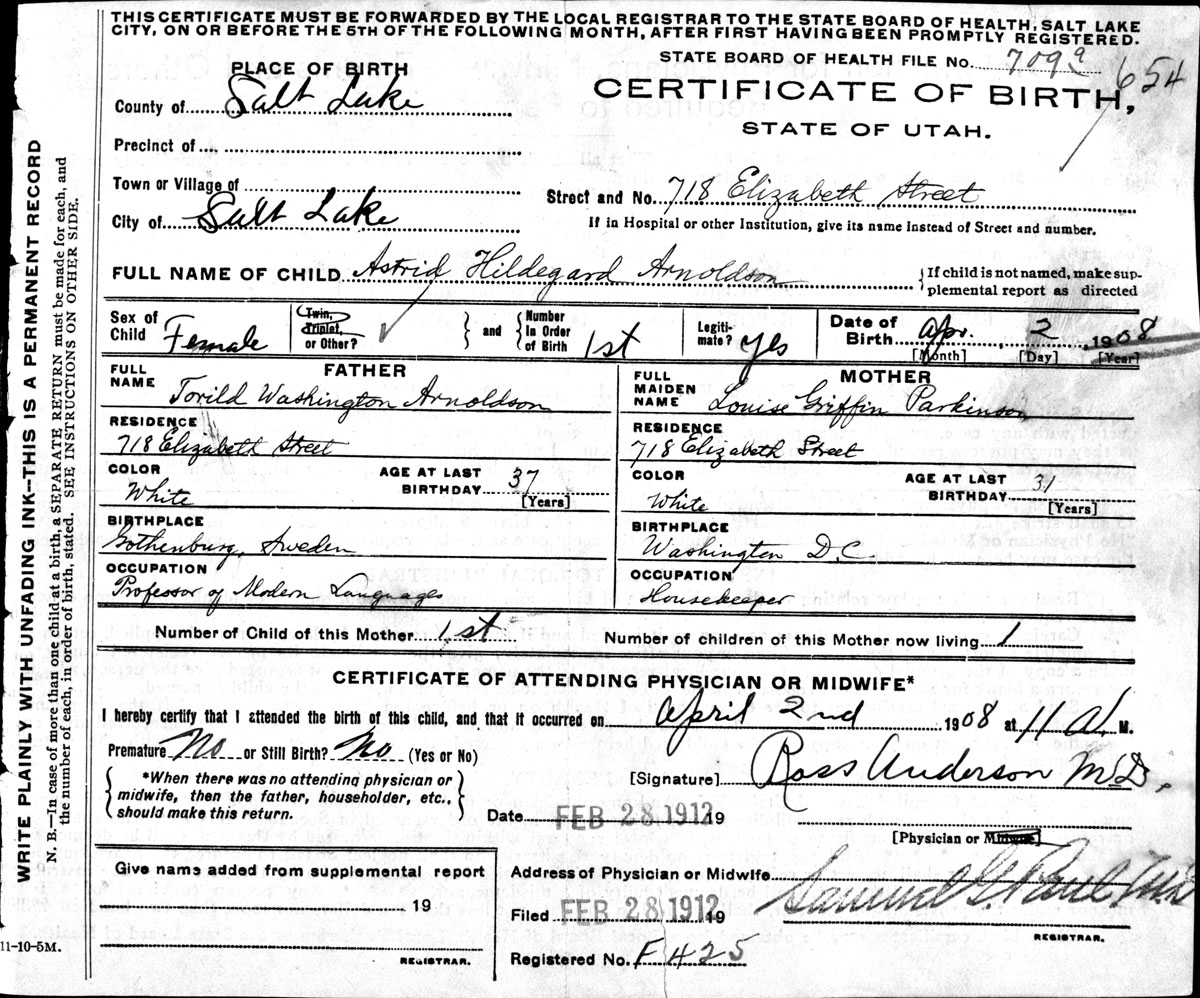 THIS CERTIFICATE MUST BE FORWARDED BY THE LOCAL REGISTRAR TO THE STATE BOARD OF HEALTH, SALT LAKE
CITY, ON OR BEFORE THE 5TH OF THE FOLLOWING MONTH, AFTER FIRST HAVING BEEN PROMPTLY REGISTERED.
STATE BOARD OF HEALTH FILE No. 709a 654
PLACE OF BIRTH
CERTIFICATE OF BIRTH,
STATE OF UTAH.
County of Salt Lake
Precinct of
Town or Village of
Street and No. 718 Elizabeth Street
City of Salt Lake
If in Hospital or other Institution, give its name instead of Street and number.
FULL NAME OF CHILD Astrid Hildegard Arnoldson
{If child is not named, make sup-
plemental report as directed
Sex of Child Female
Twin, Triplet, or Other? ✓ } and { Number in Order of Birth 1st
Legiti-mate? yes
Date of Birth Apr. 2, 1908
[Month] [Day] [Year]
FATHER
FULL NAME Torild Washington Arnoldson
RESIDENCE
718 Elizabeth Street
COLOR White
AGE AT LAST BIRTHDAY 37 [Years]
BIRTHPLACE
Gothenburg, Sweden
OCCUPATION
Professor of Modern Languages
MOTHER
FULL MAIDEN NAME Louise Griffin Parkinson
RESIDENCE
718 Elizabeth Street
COLOR White
AGE AT LAST BIRTHDAY 31 [Years]
BIRTHPLACE
Washington D.C
OCCUPATION
Housekeeper
Number of Child of this Mother 1st
Number of children of this Mother now living 1
CERTIFICATE OF ATTENDING PHYSICIAN OR MIDWIFE*
I hereby certify that I attended the birth of this child, and that it occurred on April 2nd 1908 at 11 A. M.
Premature No or Still Birth? No (Yes or No)
{ *When there was no attending physician or
midwife, then the father, householder, etc.,
should make this return. }
[Signature] Ross Anderson M.D.
Date FEB 28 1912 19
[Physician or Midwife]
Give name added from supplemental report
19
REGISTRAR.
Address of Physician or Midwife
Filed FEB 28 1912 19
Samuel G Paul
REGISTRAR.
Registered No. F 425
11-10-5M.
WRITE PLAINLY WITH UNFADING INK--THIS IS A PERMANENT RECORD
N. B.—In case of more than one child at a birth, a SEPARATE RETURN must be made for each, and
the number of each, in order of birth, stated. SEE INSTRUCTIONS ON OTHER SIDE.